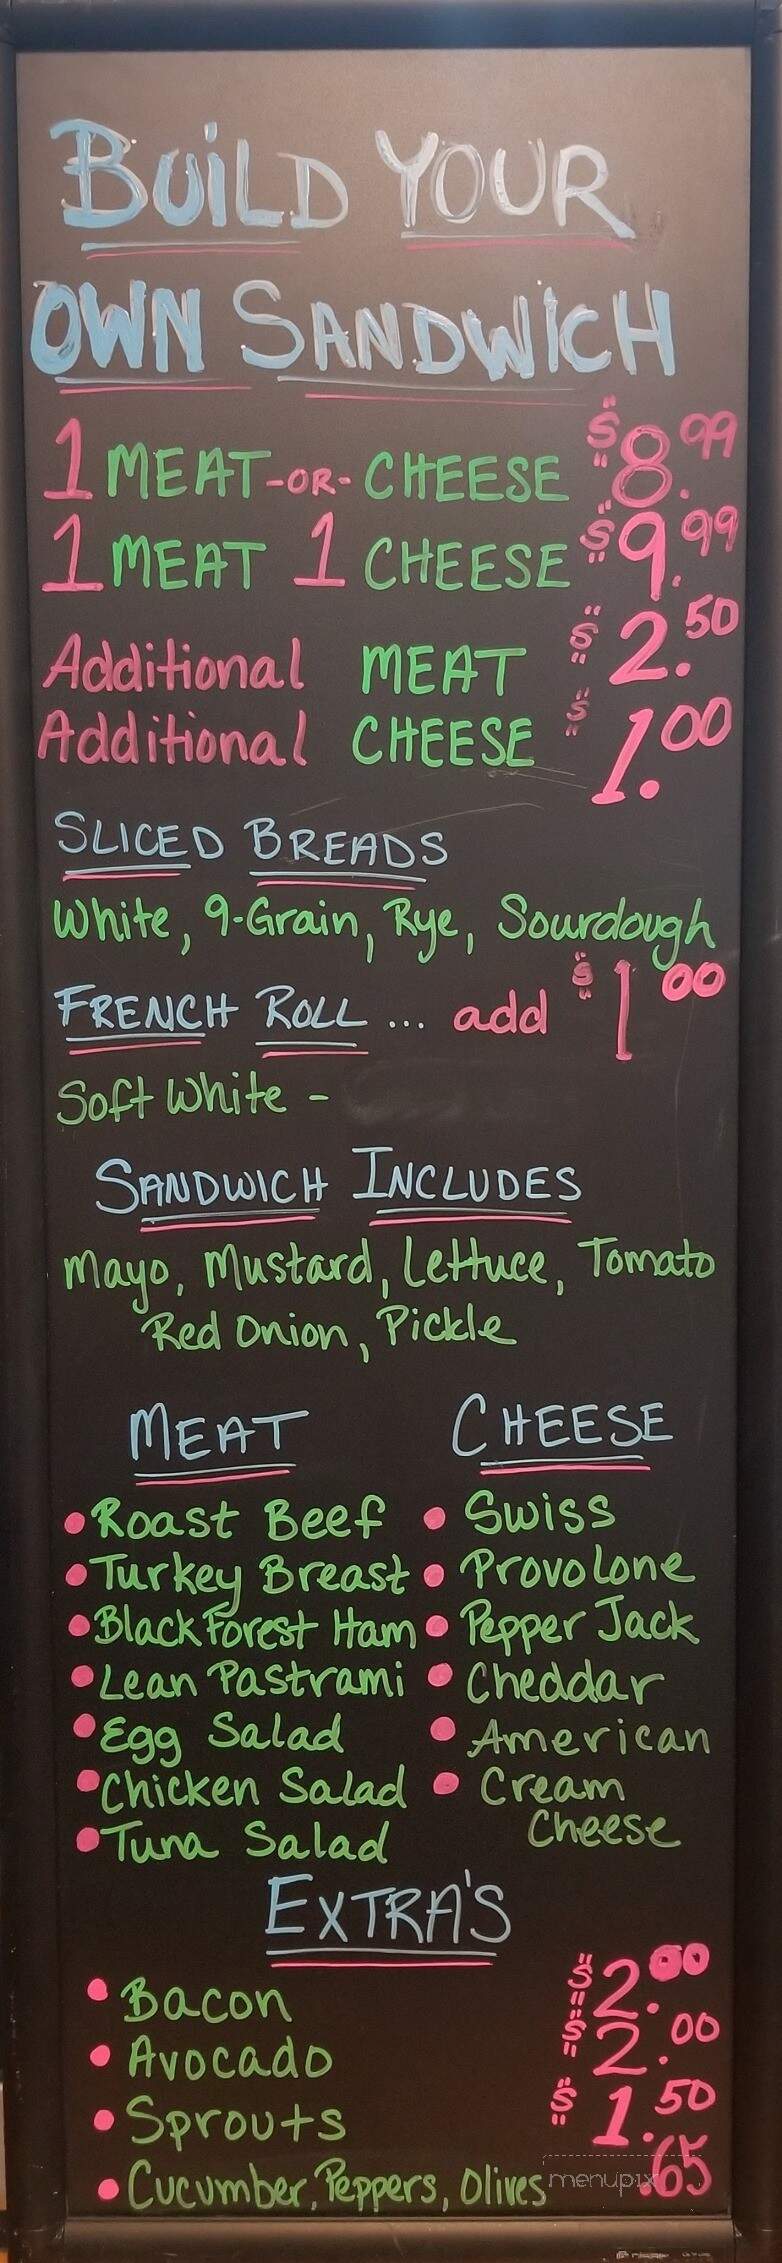 BUiLD YOUR
OWN SANDWiCH
1 MEAT -OR- CHEESE $8.99
1 MEAT 1 CHEESE $9.99
Additional MEAT $2.50
Additional CHEESE $1.00
SLICED BREADS
White, 9-Grain, Rye, Sourdough
FRENCH ROLL ... add $1.00
Soft White -
SANDWICH INCLUDES
Mayo, Mustard, Lettuce, Tomato
Red Onion, Pickle
MEAT
• Roast Beef
• Turkey Breast
• Black Forest Ham
• Lean Pastrami
• Egg Salad
• Chicken Salad
• Tuna Salad
CHEESE
• Swiss
• Provolone
• Pepper Jack
• Cheddar
• American
• Cream
Cheese
EXTRA'S
• Bacon $2.00
• Avocado $2.00
• Sprouts $1.50
• Cucumber, Peppers, Olives .65
menupix